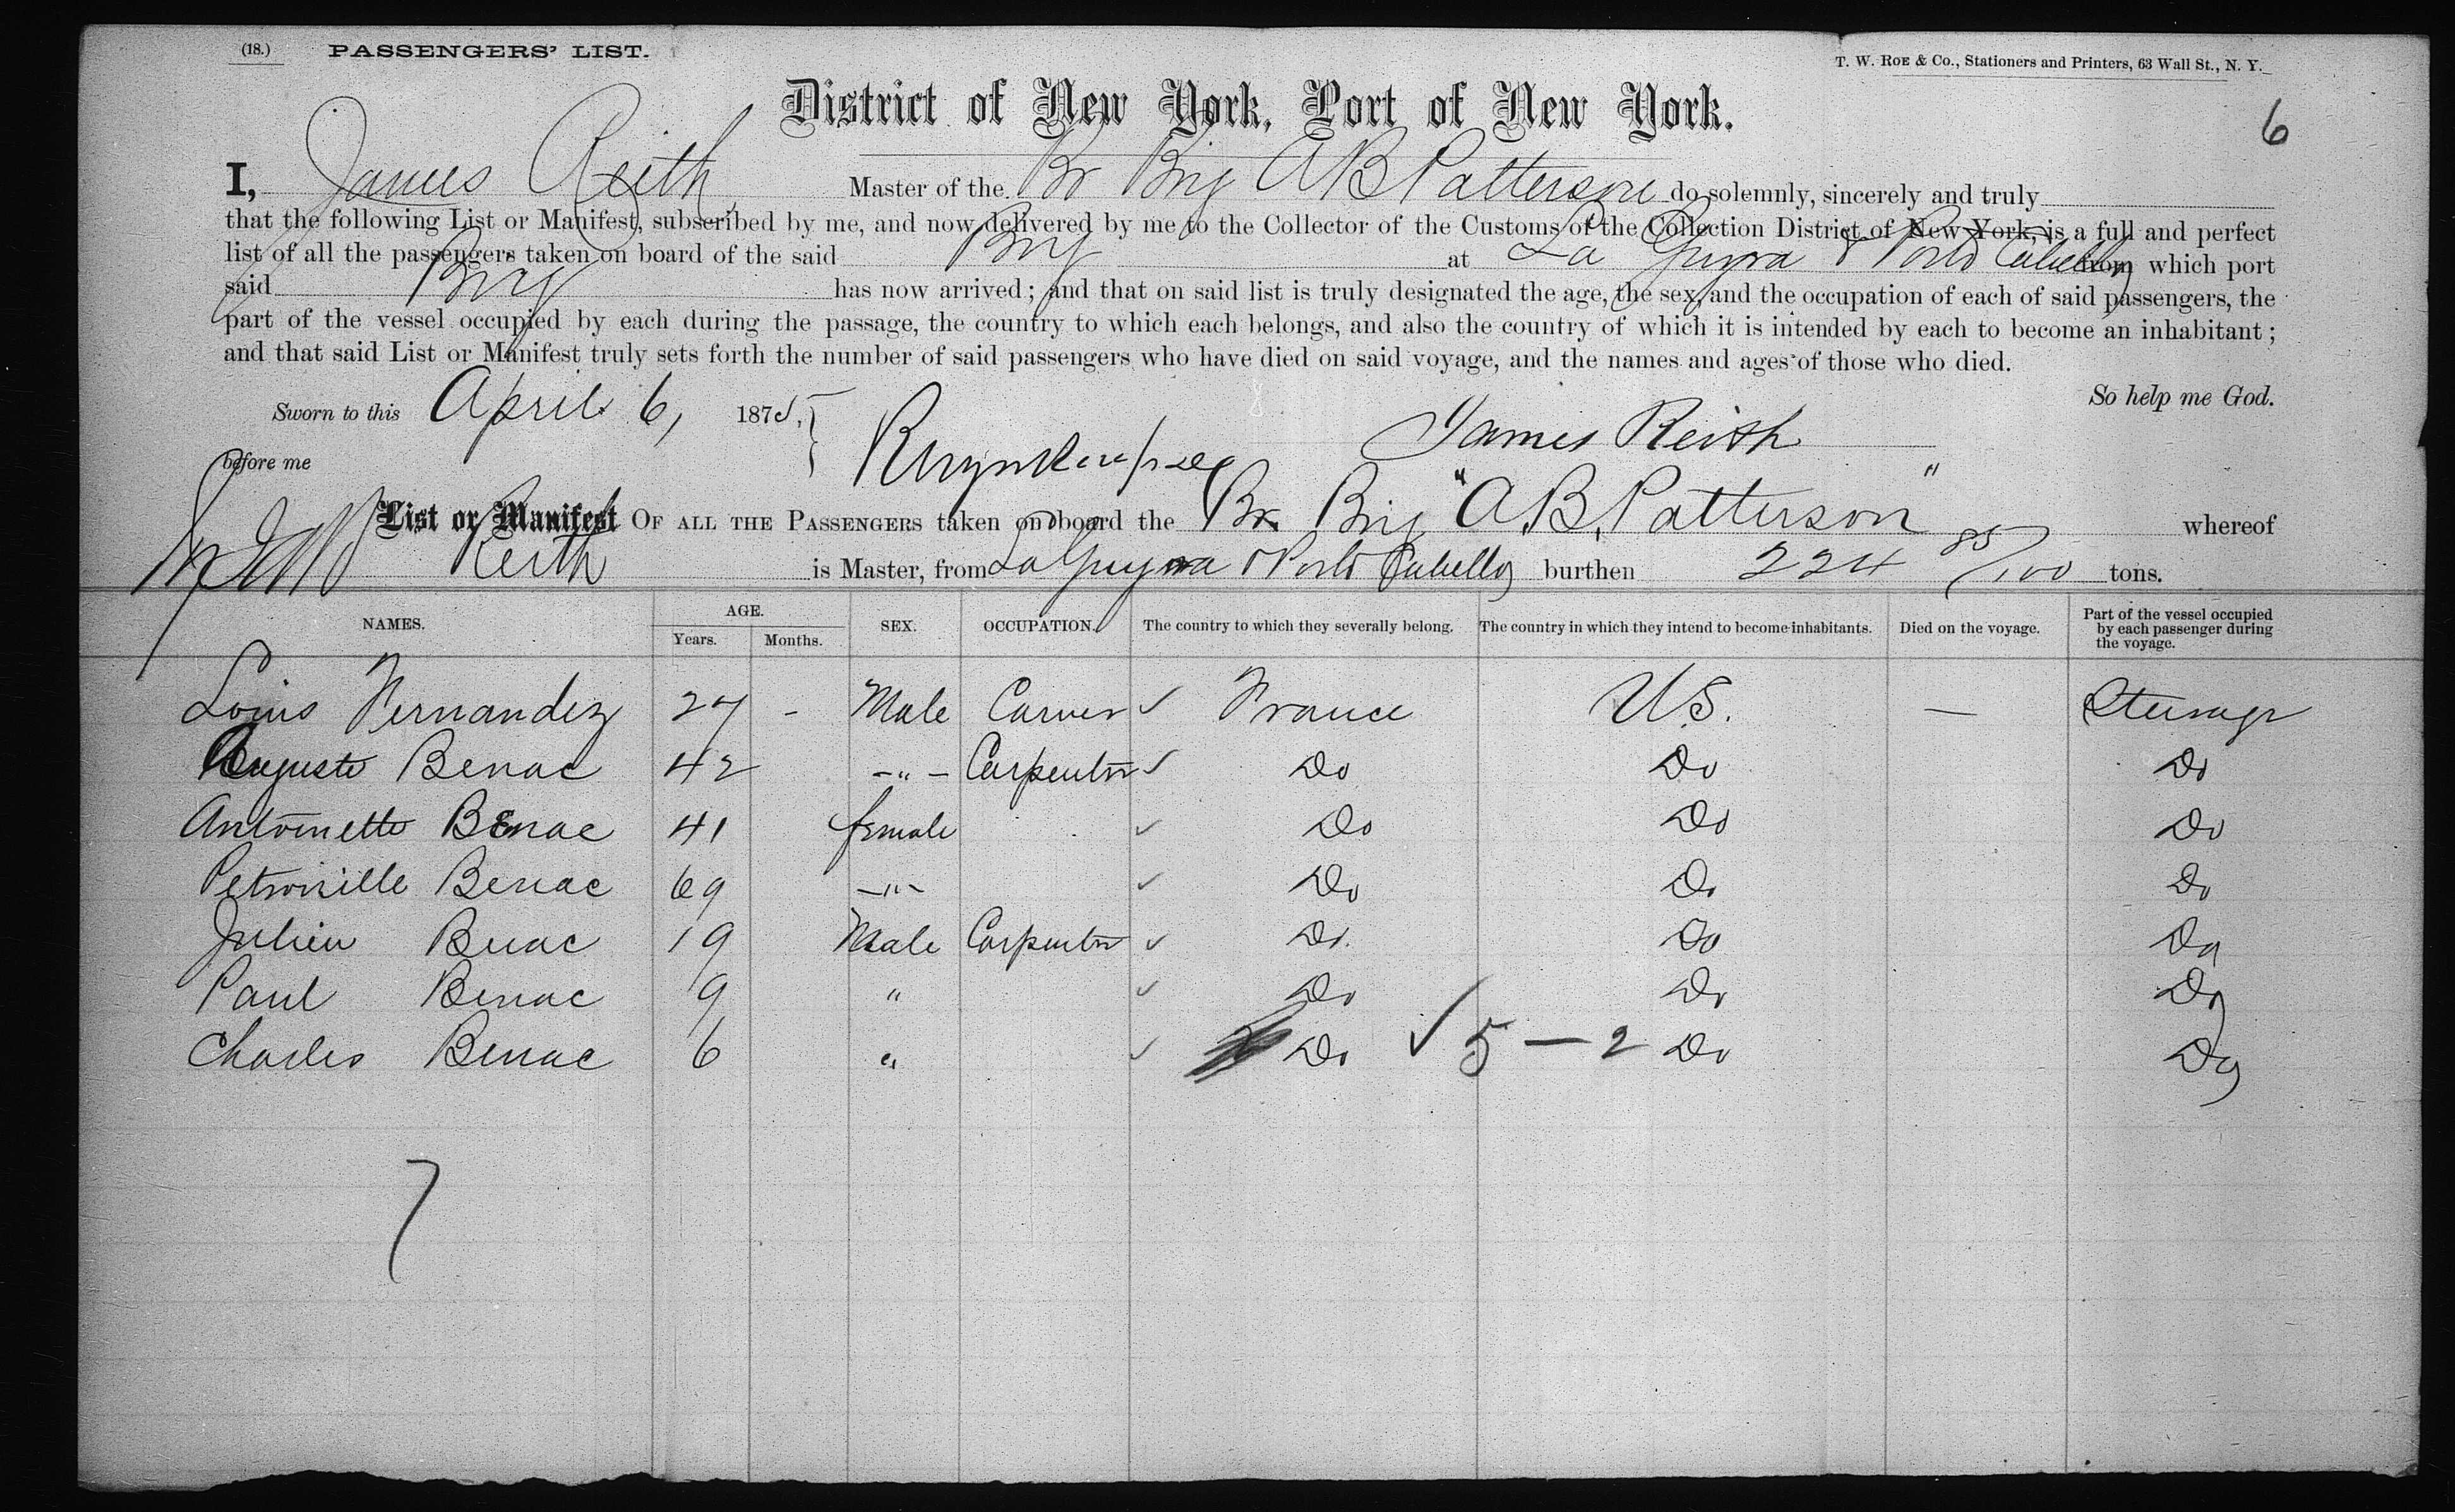 (18.) PASSENGERS' LIST.
T. W. ROE & Co., Stationers and Printers, 63 Wall St., N. Y.
District of New York, Port of New York.
6
I, James Reith Master of the Br Brig A B Patterson do solemnly, sincerely and truly
that the following List or Manifest, subscribed by me, and now delivered by me to the Collector of the Customs of the Collection District of New York, is a full and perfect
list of all the passengers taken on board of the said Brig at La Guyra & Porto Cabello from which port
said Brig has now arrived; and that on said list is truly designated the age, the sex, and the occupation of each of said passengers, the
part of the vessel occupied by each during the passage, the country to which each belongs, and also the country of which it is intended by each to become an inhabitant;
and that said List or Manifest truly sets forth the number of said passengers who have died on said voyage, and the names and ages of those who died.
So help me God.
Sworn to this April 6, 1875,
James Reith
before me
List or Manifest OF ALL THE PASSENGERS taken on board the Br. Brig "A. B. Patterson" whereof
Reith is Master, from La Guyra & Porto Cabello burthen 224 85/100 tons.
NAMES. AGE. Years. Months. SEX. OCCUPATION. The country to which they severally belong. The country in which they intend to become inhabitants. Died on the voyage. Part of the vessel occupied by each passenger during the voyage.
Louis Fernandez 27 - Male Carver ✓ France U.S. — Steerage
Auguste Benac 42 -"- Carpenter ✓ Do Do Do
Antoinette Benac 41 female ✓ Do Do Do
Petronille Benac 69 -"- ✓ Do Do Do
Julien Benac 19 Male Carpenter ✓ Do. Do Do
Paul Benac 9 " ✓ Do Do Do
Charles Benac 6 " ✓ Do ✓ 5 — 2 Do Do
7